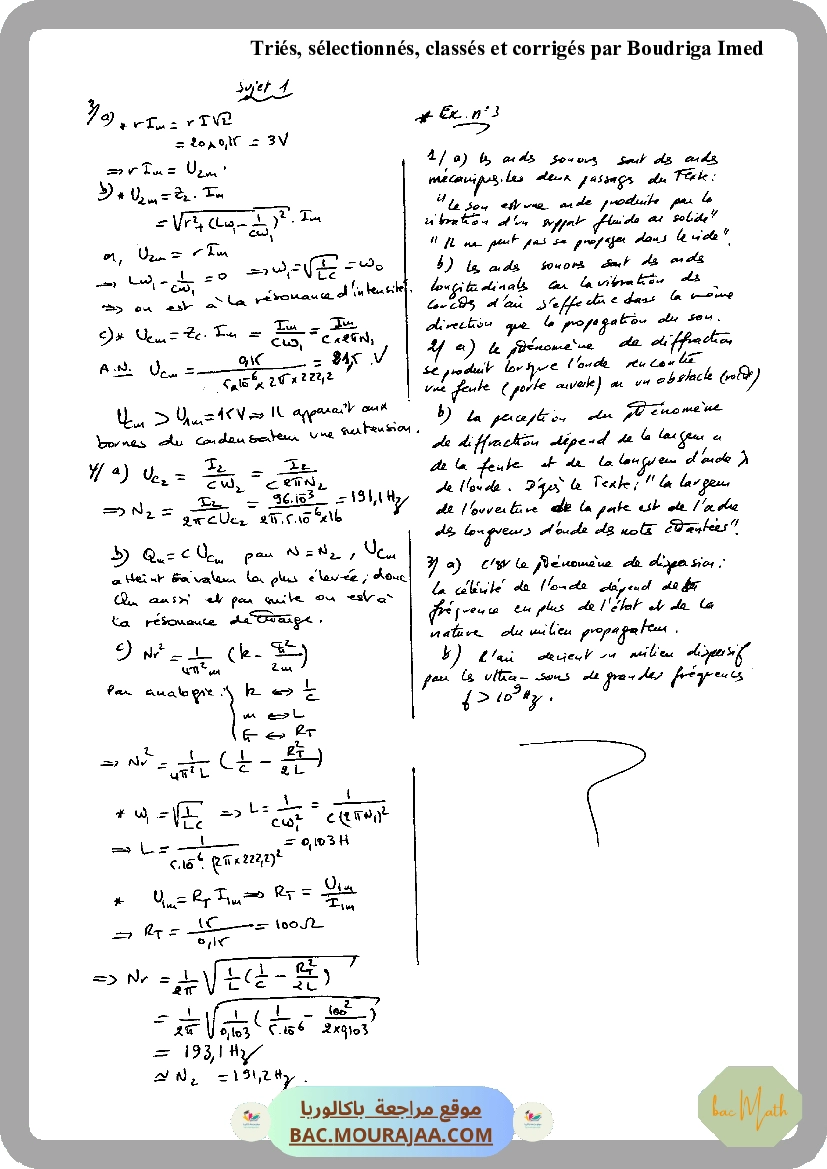 Triés, sélectionnés, classés et corrigés par Boudriga Imed
Sujet 1
3/ a) * r Im = r I√2
= 20 x 0,15 = 3V
⇒ r Im = U2m.
b) * U2m = Z2. Im
= √(r² + (Lω1 - 1/Cω1)²) . Im
or, U2m = r Im
⇒ Lω1 - 1/Cω1 = 0 ⇒ ω1 = √(1/LC) = ω0
⇒ on est à la résonance d'intensité.
c) * UCm = Zc. Im = Im/Cω1 = Im/C×2πN1
A.N. UCm = 0,15/5.10⁻⁶×2π×222,2 = 21,5 V
UCm > U1m = 15V ⇒ Il apparait aux
bornes du condensateur une surtension.
4/ a) UC2 = I2/Cω2 = I2/C2πN2
⇒ N2 = I2/2πCUC2 = 96.10⁻³/2π.5.10⁻⁶×16 = 191,1 Hz
b) Qm = C UCm pour N = N2, UCm
atteint sa valeur la plus élevée; donc
Qm aussi et par suite on est à
la résonance de charge.
c) Nr² = 1/4π²m (k - h²/2m)
Par analogie: k ⇔ 1/C
m ⇔ L
h ⇔ RT
⇒ Nr² = 1/4π²L (1/C - RT²/2L)
* ω1 = √(1/LC) ⇒ L = 1/Cω1² = 1/C(2πN1)²
⇒ L = 1/5.10⁻⁶.(2π×222,2)² = 0,103 H
* U1m = RT I1m ⇒ RT = U1m/I1m
⇒ RT = 15/0,15 = 100Ω
⇒ Nr = 1/2π √(1/L (1/C - RT²/2L))
= 1/2π √(1/0,103 (1/5.10⁻⁶ - 100²/2×0,103))
= 193,1 Hz
≃ N2 = 191,2 Hz.
* Ex. n°3
1/ a) les ondes sonores sont des ondes
mécaniques. Les deux passages du Texte:
"Le son est une onde produite par la
vibration d'un support fluide ou solide"
"Il ne peut pas se propager dans le vide".
b) les ondes sonores sont des ondes
longitudinales car la vibration des
couches d'air s'effectue dans la même
direction que la propagation du son.
2/ a) le phénomène de diffraction
se produit lorsque l'onde rencontre
une fente (porte ouverte) ou un obstacle
b) La perception du phénomène
de diffraction dépend de la largeur a
de la fente et de la longueur d'onde λ
de l'onde. D'après le Texte; "la largeur
de l'ouverture de la porte est de l'ordre
des longueurs d'onde des notes chantées".
3/ a) C'est le phénomène de dispersion:
la célérité de l'onde dépend de sa
fréquence en plus de l'état et de la
nature du milieu propagateur.
b) L'air devient un milieu dispersif
pour les ultra-sons de grandes fréquences
f > 10⁹ Hz.
موقع مراجعة باكالوريا
BAC.MOURAJAA.COM
bac Math